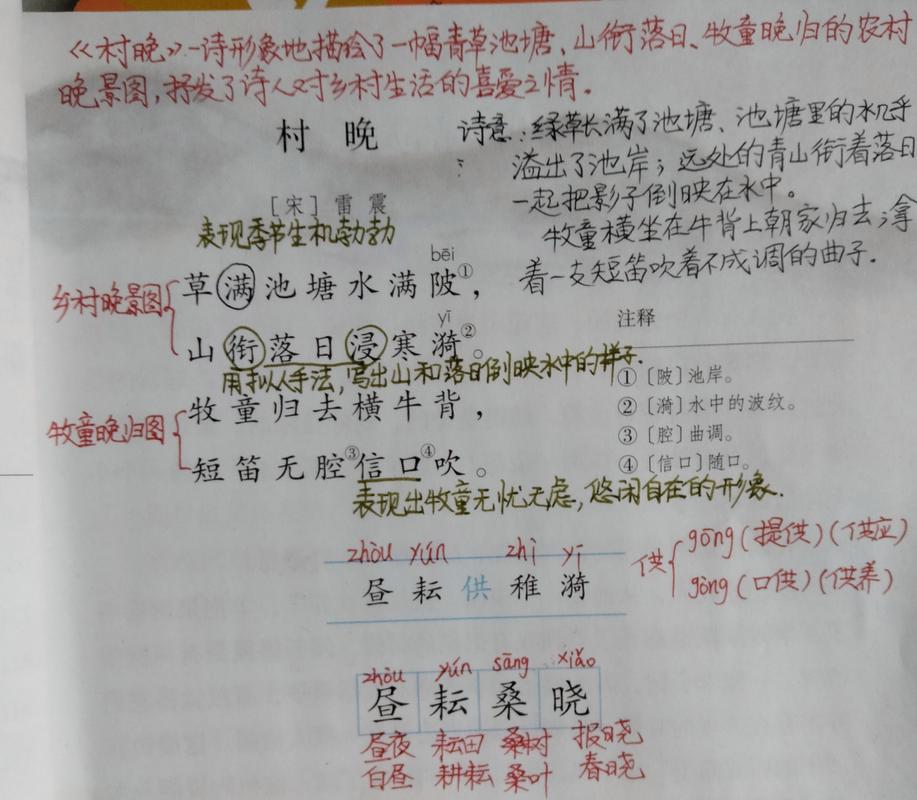 《村晚》一诗形象地描绘了一幅青草池塘、山衔落日、牧童晚归的农村
晚景图，抒发了诗人对乡村生活的喜爱之情。
村晚
诗意：绿草长满了池塘、池塘里的水几乎
溢出了池岸；远处的青山衔着落日
一起把影子倒映在水中。
牧童横坐在牛背上朝家归去；拿
着一支短笛吹着不成调的曲子.
［宋］雷震
表现季节生机勃勃
bēi
草满池塘水满陂①，
乡村晚景图
yī
山衔落日浸寒漪②。
用拟人手法，写出山和落日倒映水中的样子.
牧童归去横牛背，
牧童晚归图
短笛无腔③信口④吹。
表现出牧童无忧无虑，悠闲自在的形象.
注释
①〔陂〕池岸。
②〔漪〕水中的波纹。
③〔腔〕曲调。
④〔信口〕随口。
zhòu yún zhì yī
昼耘供稚漪
供 gōng（提供）（供应）
gòng（口供）（供养）
zhòu yún sāng xiǎo
昼耘桑晓
昼夜 耘田 桑树 报晓
白昼 耕耘 桑叶 春晓